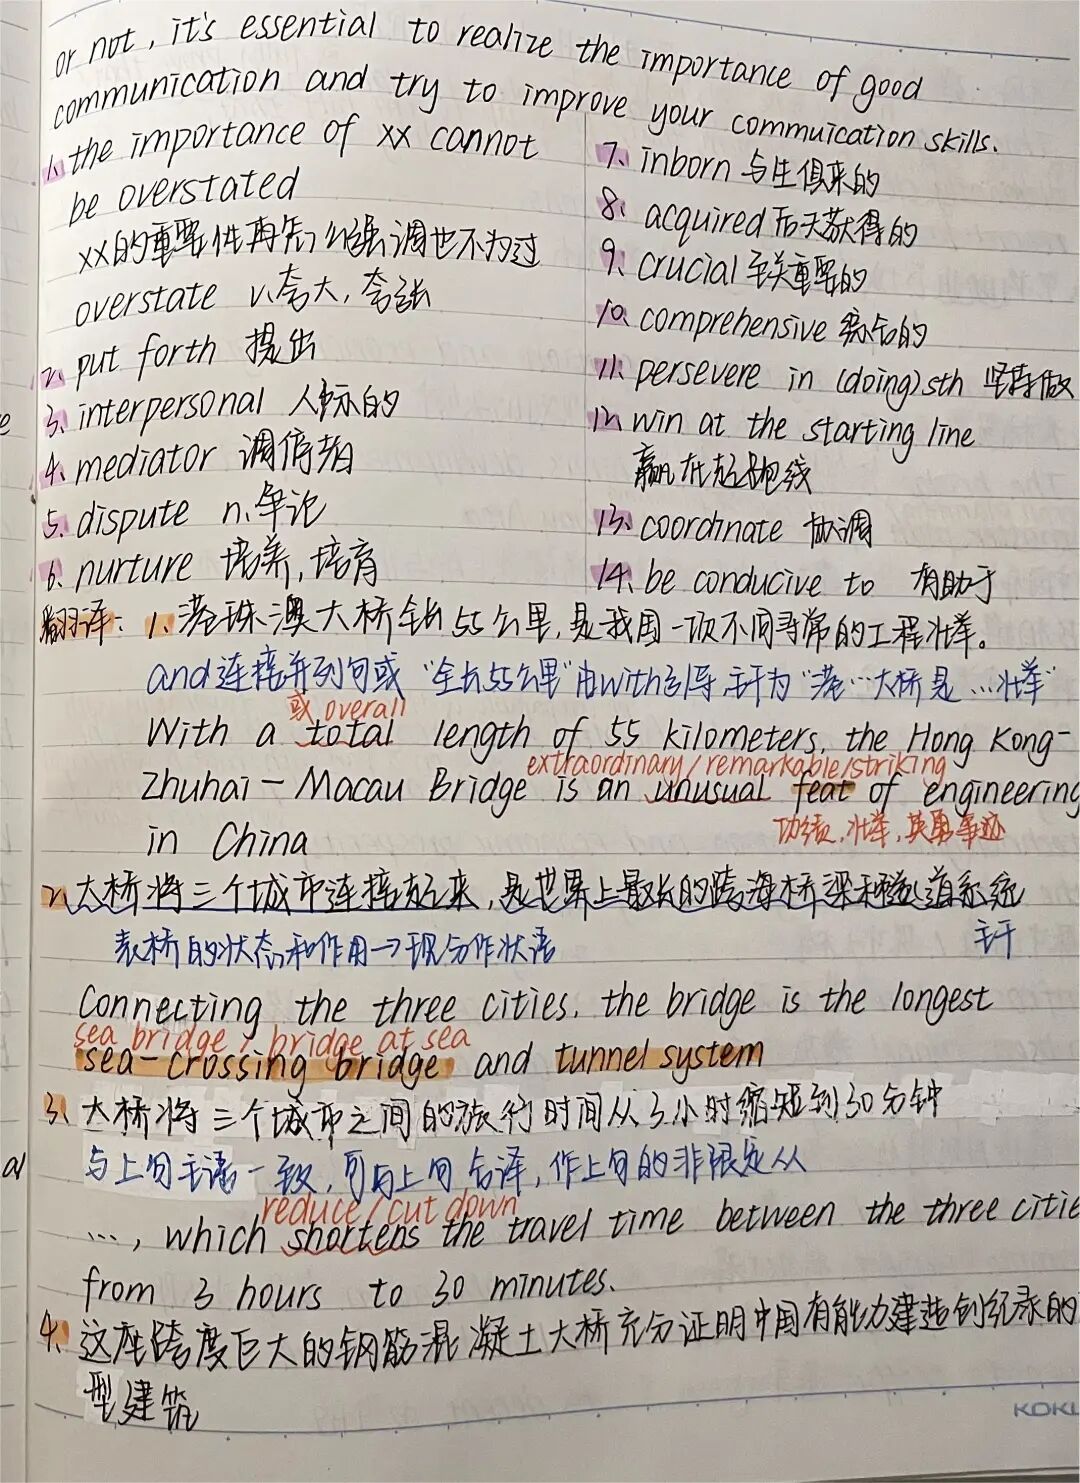 or not, it's essential to realize the importance of good
communication and try to improve your commuication skills.
1. the importance of xx cannot
be overstated
xx的重要性再怎么强调也不为过
overstate v.夸大，夸张
2. put forth 提出
3. interpersonal 人际的
4. mediator 调停者
5. dispute n.争论
6. nurture 培养，培育
7. inborn 与生俱来的
8. acquired 后天获得的
9. crucial 至关重要的
10. comprehensive 综合的
11. persevere in (doing) sth 坚持做
12. win at the starting line
赢在起跑线
13. coordinate 协调
14. be conducive to 有助于
翻译：1. 港珠澳大桥全长55公里，是我国一次不同寻常的工程壮举。
and连接并列句或“全长55公里”由with引导，主干为“港…大桥是…壮举”
或 overall
With a total length of 55 kilometers, the Hong Kong-
extraordinary/remarkable/striking
Zhuhai-Macau Bridge is an unusual feat of engineering
功绩，壮举，英勇事迹
in China
2. 大桥将三个城市连接起来，是世界上最长的跨海桥梁和隧道系统
表桥的状态和作用→现分作状语
主干
Connecting the three cities, the bridge is the longest
sea bridge / bridge at sea
sea-crossing bridge and tunnel system
3. 大桥将三个城市之间的旅行时间从3小时缩短到30分钟
与上句主语一致，可与上句合译，作上句的非限定从
reduce/cut down
..., which shortens the travel time between the three citie
from 3 hours to 30 minutes.
4. 这座跨度巨大的钢筋混凝土大桥充分证明中国有能力建造创纪录的
型建筑
KOKU
al